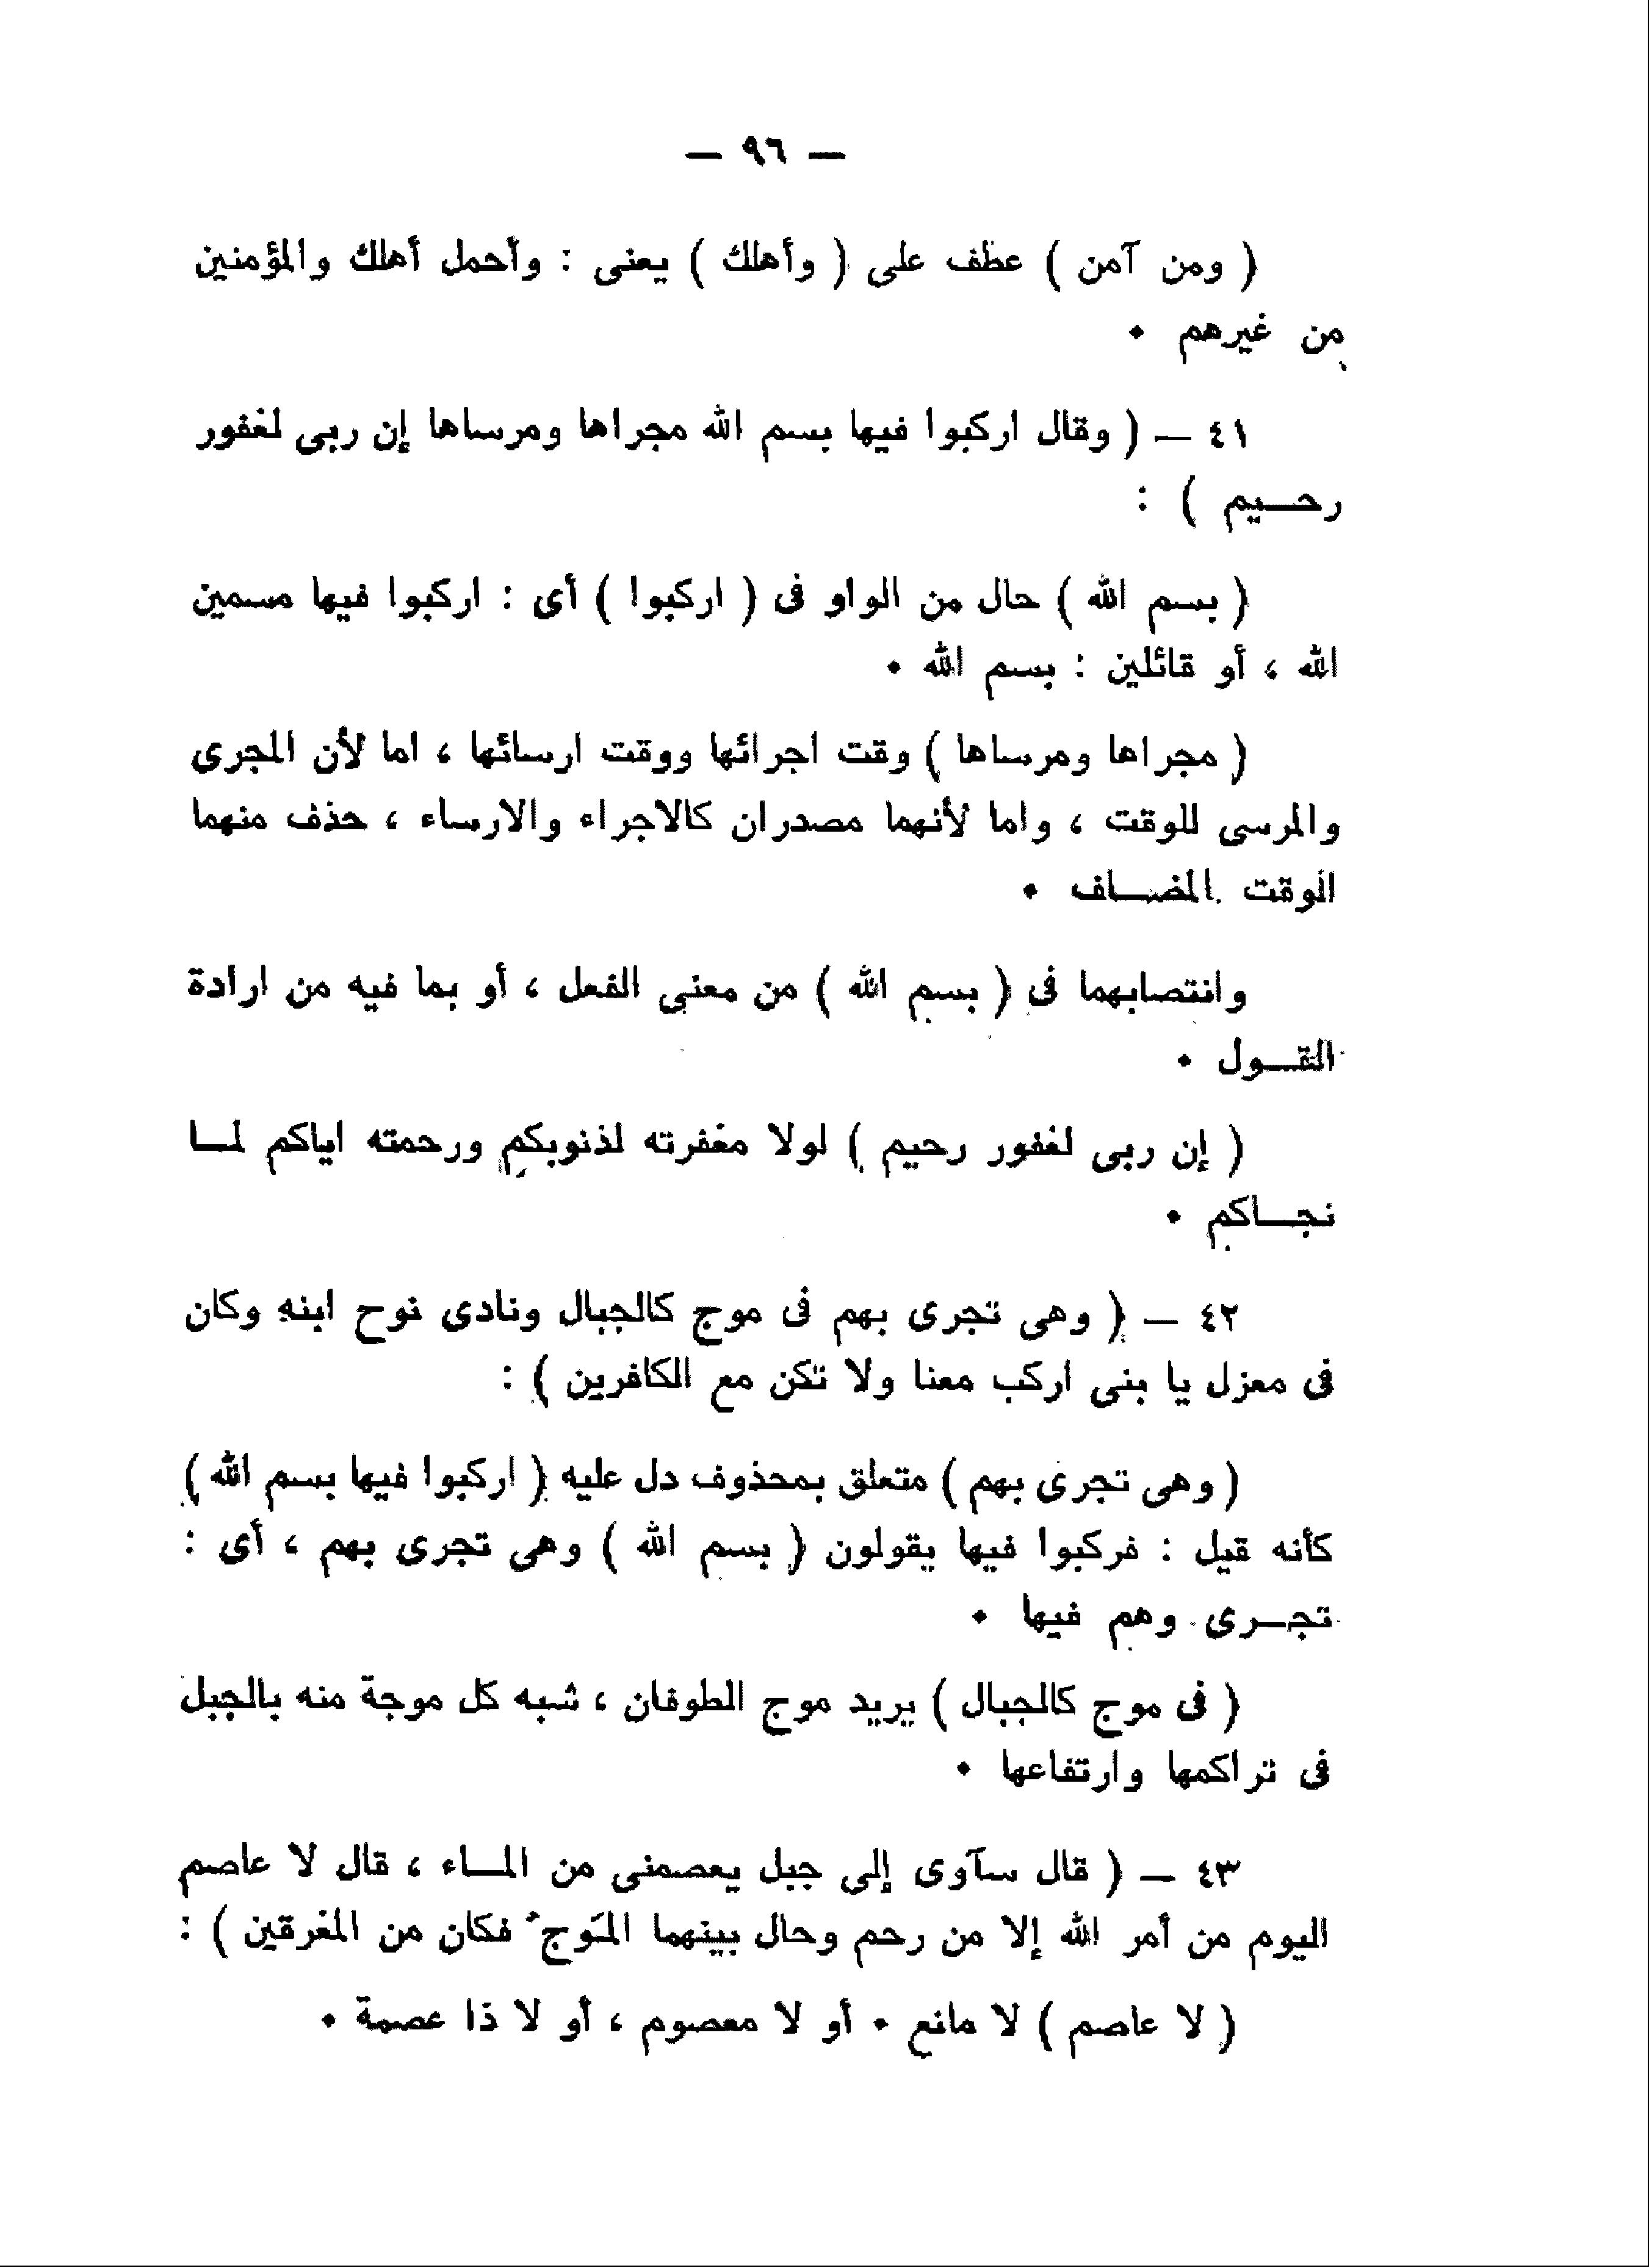 — ٩٦ —
( ومن آمن ) عطف على ( وأهلك ) يعنى : وأحمل أهلك والمؤمنين
من غيرهم .
٤١ — ( وقال اركبوا فيها بسم الله مجراها ومرساها إن ربى لغفور
رحـــيم ) :
( بسم الله ) حال من الواو فى ( اركبوا ) أى : اركبوا فيها مسمين
الله ، أو قائلين : بسم الله .
( مجراها ومرساها ) وقت اجرائها ووقت ارسائها ، اما لأن المجرى
والمرسى للوقت ، واما لأنهما مصدران كالاجراء والارساء ، حذف منهما
الوقت المضـــاف .
وانتصابهما فى ( بسم الله ) من معنى الفعل ، أو بما فيه من ارادة
القـــول .
( إن ربى لغفور رحيم ) لولا مغفرته لذنوبكم ورحمته اياكم لمـــا
نجـــاكم .
٤٢ — ( وهى تجرى بهم فى موج كالجبال ونادى نوح ابنه وكان
فى معزل يا بنى اركب معنا ولا تكن مع الكافرين ) :
( وهى تجرى بهم ) متعلق بمحذوف دل عليه ( اركبوا فيها بسم الله )
كأنه قيل : فركبوا فيها يقولون ( بسم الله ) وهى تجرى بهم ، أى :
تجـــرى وهم فيها .
( فى موج كالجبال ) يريد موج الطوفان ، شبه كل موجة منه بالجبل
فى تراكمها وارتفاعها .
٤٣ — ( قال سآوى إلى جبل يعصمنى من المـــاء ، قال لا عاصم
اليوم من أمر الله إلا من رحم وحال بينهما المَوجُ فكان من المغرقين ) :
( لا عاصم ) لا مانع . أو لا معصوم ، أو لا ذا عصمة .